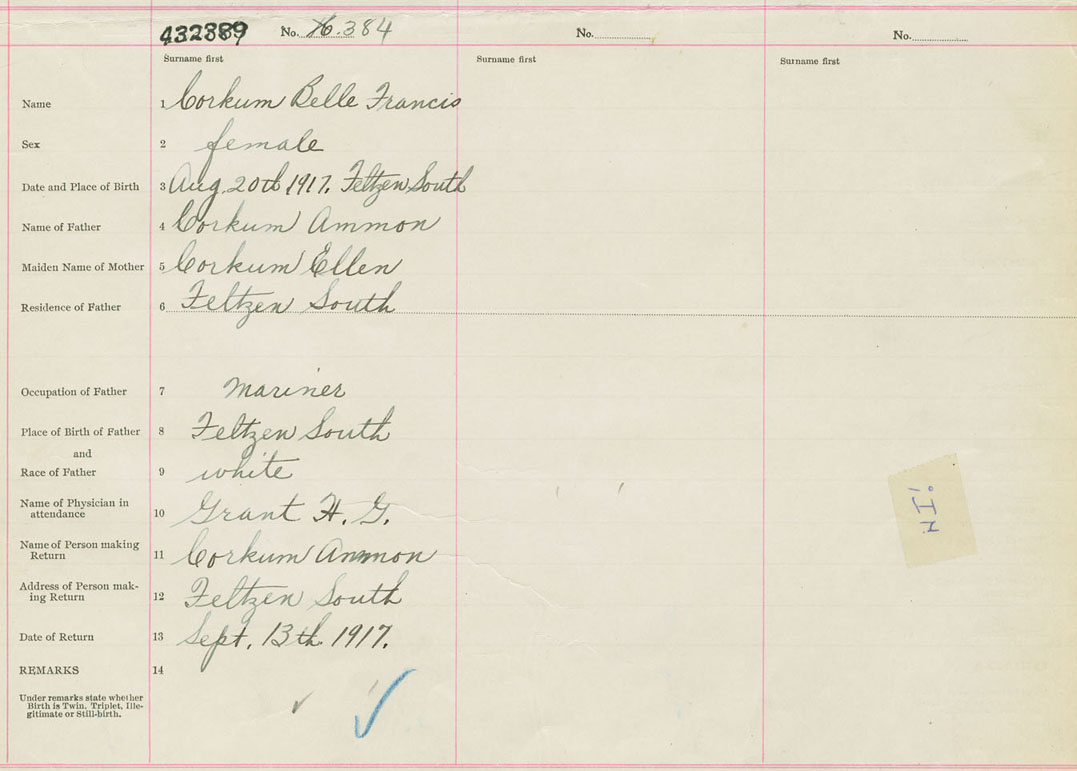 432889 No. X.384 No. No.
Surname first Surname first Surname first
Name 1 Corkum Belle Francis
Sex 2 female
Date and Place of Birth 3 Aug. 20th 1917. Feltzen South
Name of Father 4 Corkum Ammon
Maiden Name of Mother 5 Corkum Ellen
Residence of Father 6 Feltzen South
Occupation of Father 7 Mariner
Place of Birth of Father 8 Feltzen South
and
Race of Father 9 white
Name of Physician in
attendance 10 Grant H. G.
Name of Person making
Return 11 Corkum Ammon
Address of Person mak-
ing Return 12 Feltzen South
Date of Return 13 Sept. 13th 1917.
REMARKS 14
Under remarks state whether
Birth is Twin, Triplet, Ille-
gitimate or Still-birth.
HI!